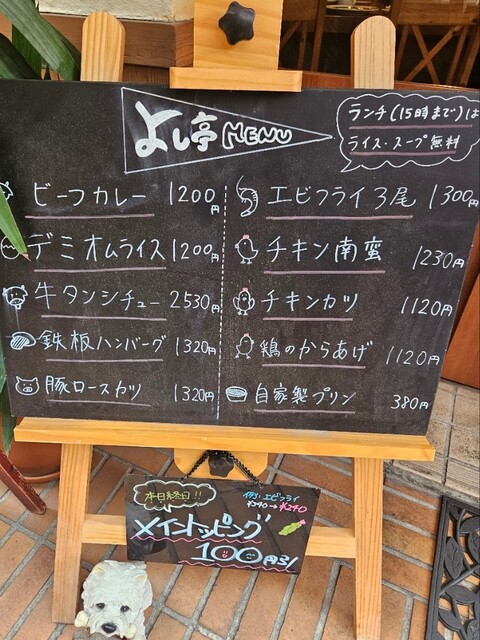 よし亭 MENU
ランチ(15時まで)は
ライス・スープ無料
ビーフカレー 1200円
デミオムライス 1200円
牛タンシチュー 2530円
鉄板ハンバーグ 1320円
豚ロースカツ 1320円
エビフライ3尾 1300円
チキン南蛮 1230円
チキンカツ 1120円
鶏のからあげ 1120円
自家製プリン 380円
本日終日!!
例:エビフライ
¥340→¥240
メイントッピング
100円引